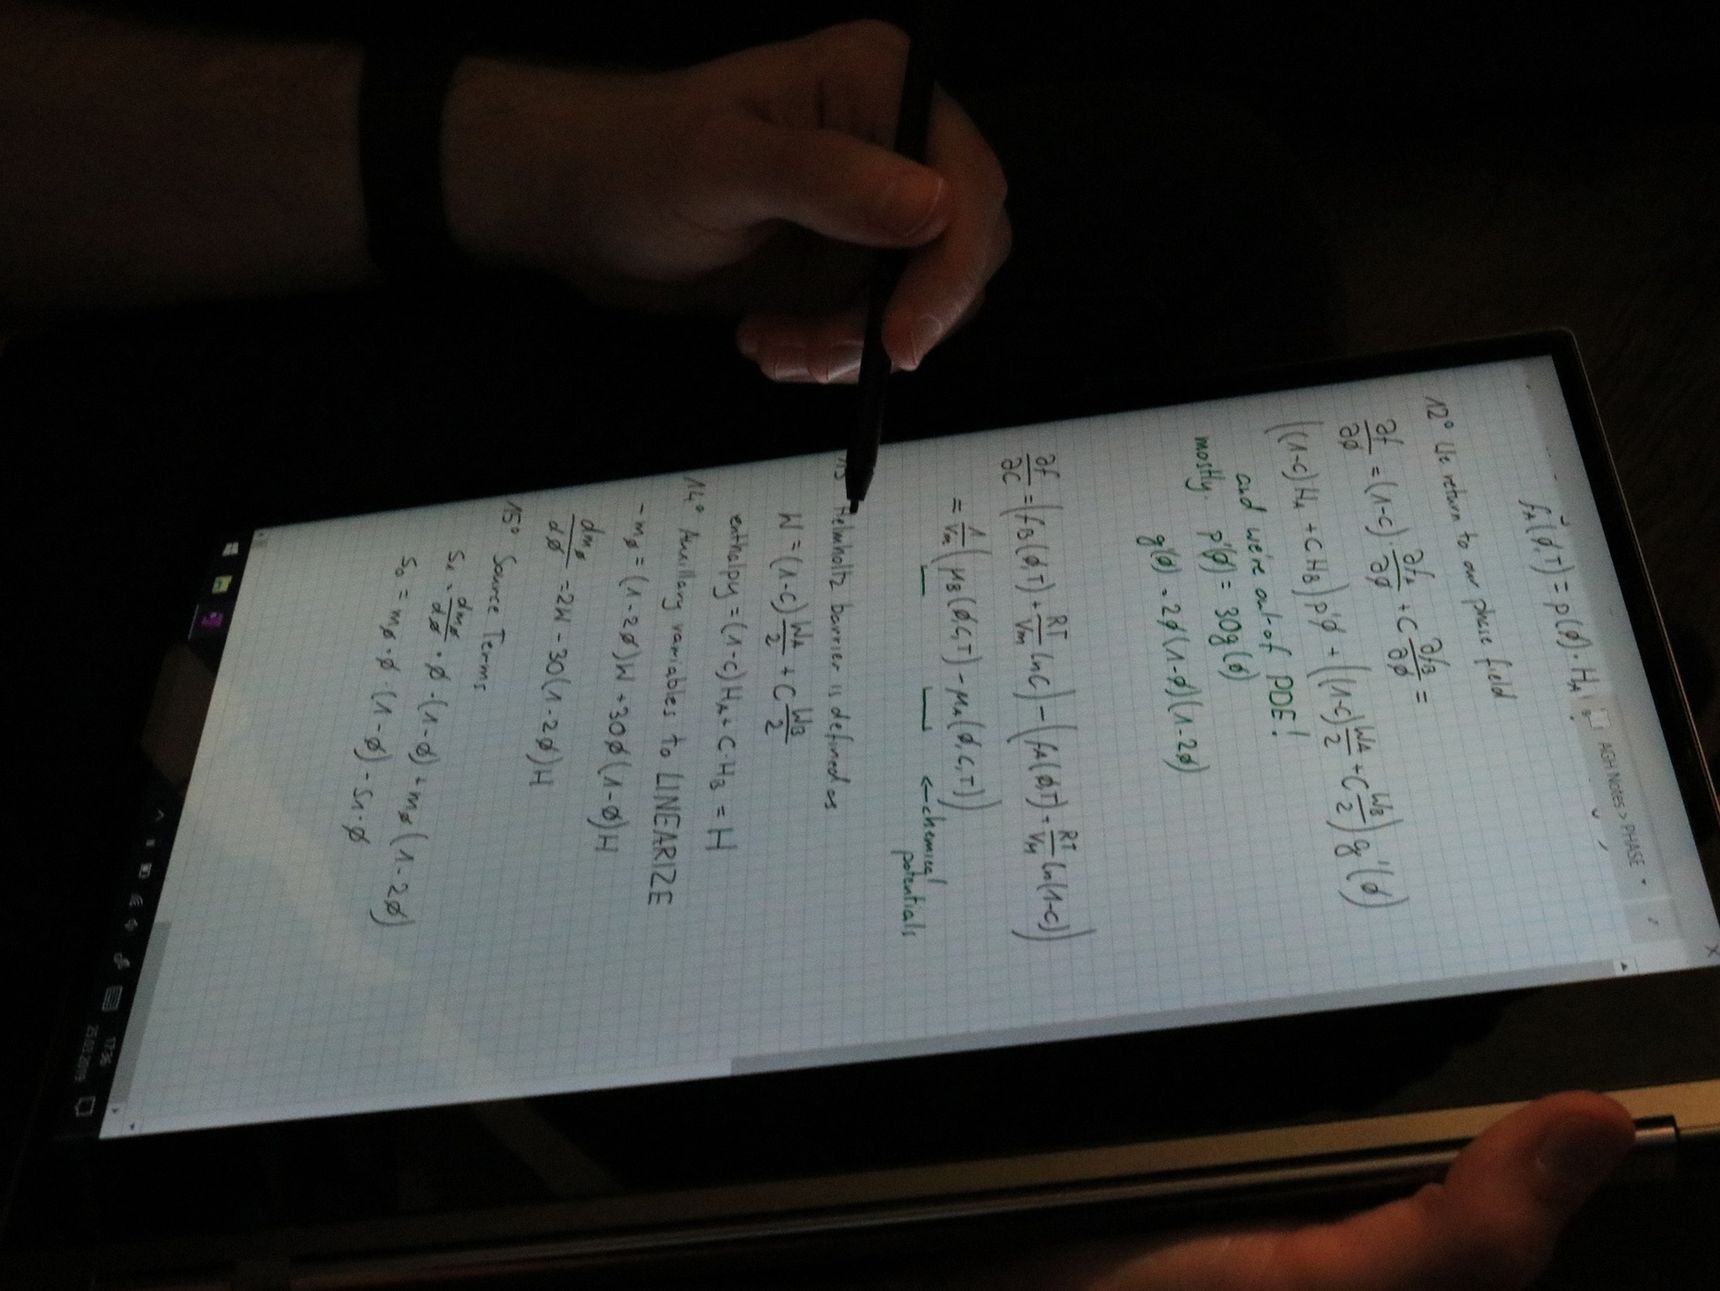 AGH Notes > PHASE
fA(ϕ,T) = p(ϕ)·HA
12° We return to our phase field
∂f/∂ϕ = (1-c)·∂fA/∂ϕ + C ∂fB/∂ϕ =
((1-c)HA + C HB)p'ϕ + ((1-c)WA/2 + C WB/2)g'(ϕ)
and we're out of PDE!
mostly. p'(ϕ) = 30g(ϕ)
g'(ϕ) = 2ϕ(1-ϕ)(1-2ϕ)
∂f/∂C = (fB(ϕ,T) + RT/Vm lnC) - (fA(ϕ,T) + RT/Vm ln(1-C))
= 1/Vm (μB(ϕ,C,T) - μA(ϕ,C,T))
← chemical
potentials
Helmholtz barrier is defined as
W = (1-C) WA/2 + C WB/2
enthalpy = (1-C)HA + C·HB = H
14° Auxillary variables to LINEARIZE
-mϕ = (1-2ϕ)W + 30ϕ(1-ϕ)H
dmϕ/dϕ = 2W - 30(1-2ϕ)H
15° Source Terms
S1 = dmϕ/dϕ · ϕ · (1-ϕ) + mϕ(1-2ϕ)
S0 = mϕ · ϕ · (1-ϕ) - S1·ϕ
17:36
25.03.2019